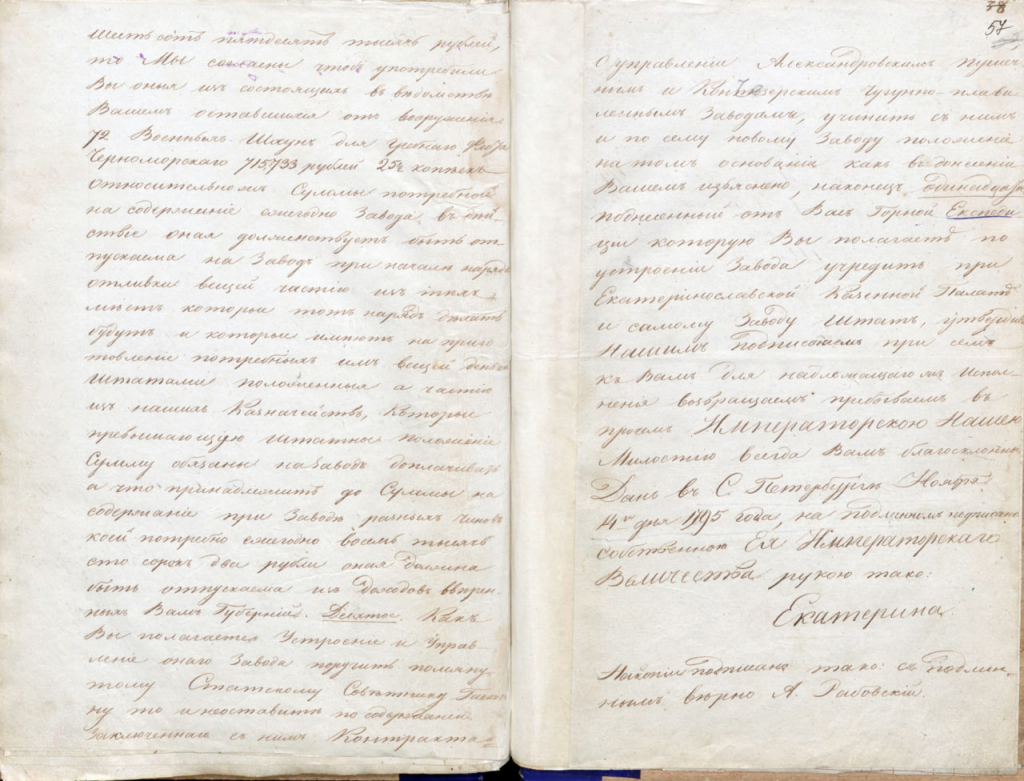 шесть сотъ пятдесятъ тысячь рублей,
то Мы согласны чтобъ употребили
Вы оныя изъ состоящихъ въ ведомстве
Вашемъ оставшихся отъ вооруженія
72 Военныхъ Шкунъ для гребнаго Флота
Черноморскаго 715,733 рублей 25¼ копѣекъ
относительно Суммы потребной
на содержаніе ежегодно Завода въ дѣй-
ствіе оная долженствуетъ быть от-
пускаема на Заводъ при началѣ наряда
отливки вещей частію изъ тѣхъ
мѣстъ которыя тотъ нарядъ дѣлать
будутъ и которыя имѣютъ на приго
товленіе потребныхъ имъ вещей деньги
штатами положенныя а частію
изъ нашихъ Казначействъ, Которыя
превышающую штатное положеніе
Сумму обязаны на Заводъ доплачивать
а что принадлежитъ до Суммы на
содержаніе при Заводѣ разныхъ чиновъ
коей потребно ежегодно восемь тысячь
сто сорокъ два рубли оная должна
быть отпускаема изъ доходовъ ввѣрен-
ныхъ Вамъ Губерній. Десятое. Какъ
Вы полагаете Устроеніе и Управ-
леніе онаго Завода поручить помяну-
тому Статскому Совѣтнику Гаско
ну то и неоставить по содержанію
Заключеннаго съ нимъ Контракта
38
57
О управленіи Александровскимъ пушеч
нымъ и Кончезерскимъ Чугунно-плави
леннымъ Заводамъ, учинить съ нимъ
и по сему новому Заводу положеніе
на томъ основаніи какъ въ донесеніи
Вашемъ изъяснено, наконецъ, одинадцатое
поднесенный отъ Васъ Горной Експеди
ціи которую Вы полагаете по
устроеніи Завода учредить при
Екатеринославской Казенной Палатѣ
и самому Заводу штатъ, утвердивъ
Нашимъ подписаніемъ при семъ
къ Вамъ для надлежащаго Испол-
ненія возвращаемъ пребываемъ въ
проемъ Императорскою Нашею
Милостію всегда Вамъ благосклонны
Данъ въ С. Петербургѣ Ноября
14го дня 1795 года, на подлинномъ подписано
собственною Ея Императорскаго
Величества рукою тако:
Екатерина
На копіи подписано тако: съ подлин-
нымъ вѣрно А. Рабовскій.